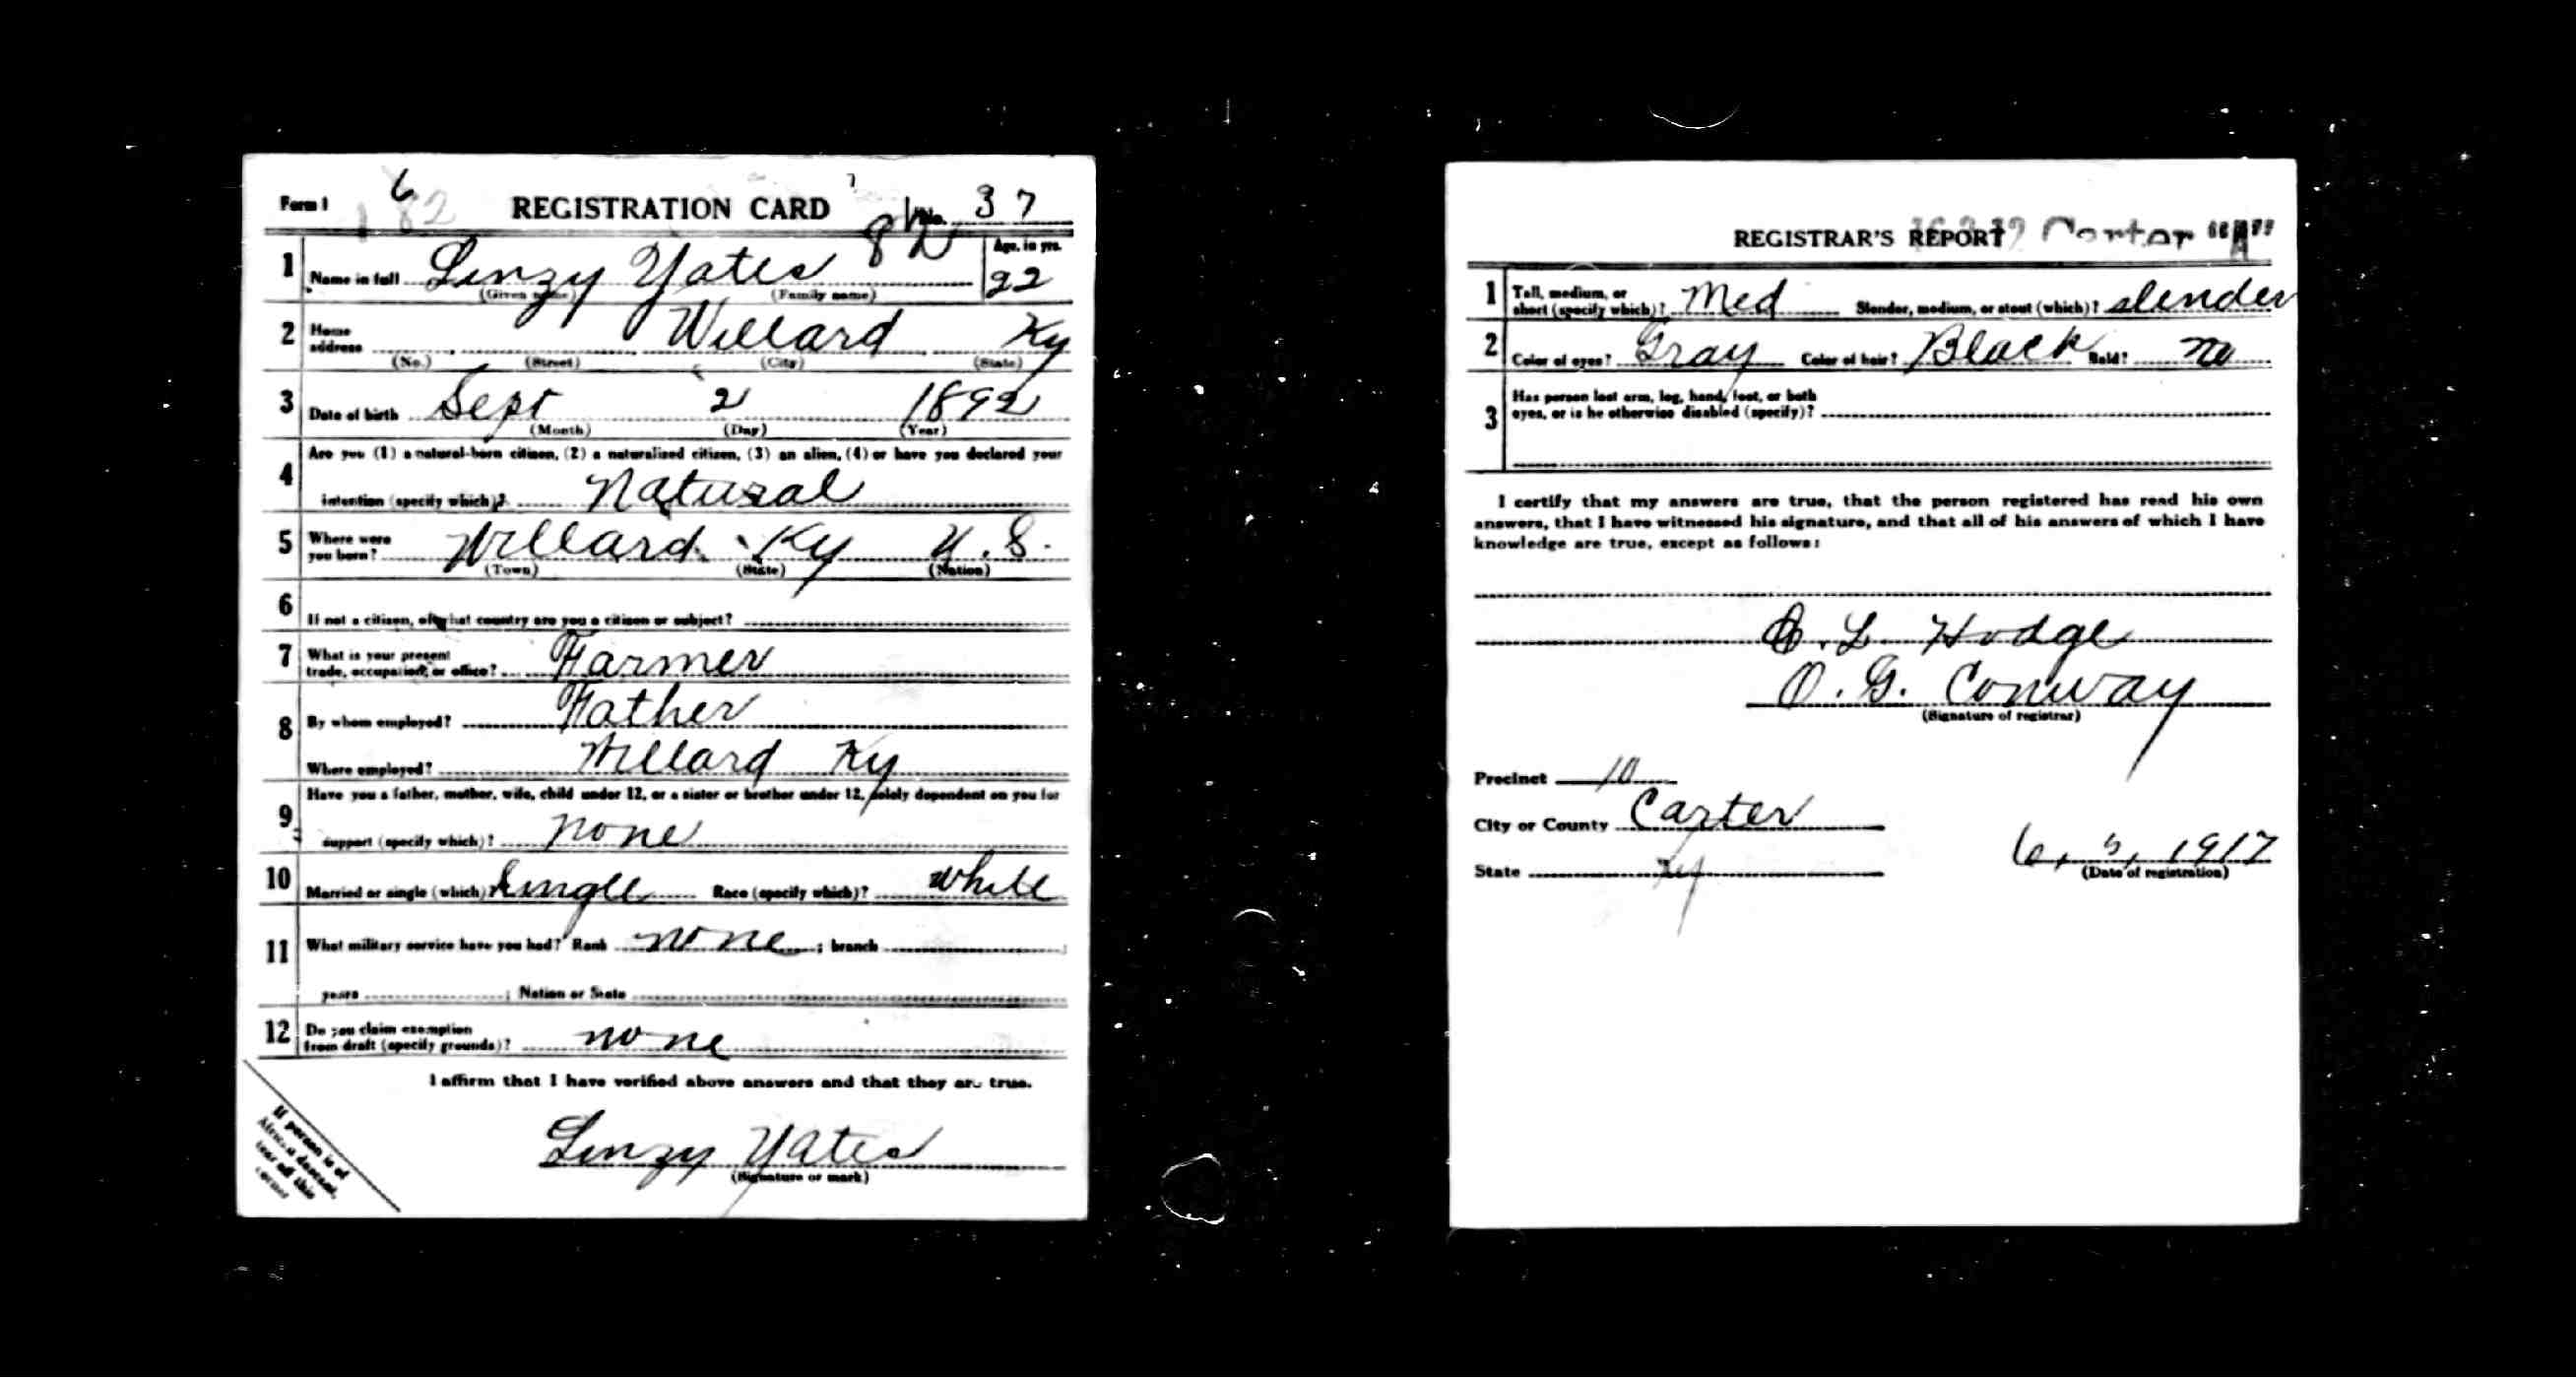 Form 1 6 182 REGISTRATION CARD No. 37
82
1 Name in full Linzy Yates Age, in yrs. 22
(Given name) (Family name)
2 Home address Willard Ky
(No.) (Street) (City) (State)
3 Date of birth Sept 2 1892
(Month) (Day) (Year)
4 Are you (1) a natural-born citizen, (2) a naturalized citizen, (3) an alien, (4) or have you declared your
intention (specify which)? Natural
5 Where were you born? Willard Ky U.S.
(Town) (State) (Nation)
6 If not a citizen, of what country are you a citizen or subject?
7 What is your present trade, occupation, or office? Farmer
8 By whom employed? Father
Where employed? Willard Ky
9 Have you a father, mother, wife, child under 12, or a sister or brother under 12, solely dependent on you for
support (specify which)? none
10 Married or single (which)? Single Race (specify which)? white
11 What military service have you had? Rank none ; branch ;
years ; Nation or State
12 Do you claim exemption from draft (specify grounds)? none
I affirm that I have verified above answers and that they are true.
Linzy Yates
(Signature or mark)
If person is of
African descent,
tear off this
corner
REGISTRAR'S REPORT Carter "A"
1 Tall, medium, or short (specify which)? Med Slender, medium, or stout (which)? slender
2 Color of eyes? Gray Color of hair? Black Bald? no
3 Has person lost arm, leg, hand, foot, or both
eyes, or is he otherwise disabled (specify)?
I certify that my answers are true, that the person registered has read his own
answers, that I have witnessed his signature, and that all of his answers of which I have
knowledge are true, except as follows:
L. Hodge
O. G. Conway
(Signature of registrar)
Precinct 10
City or County Carter
State Ky
6, 5, 1917
(Date of registration)